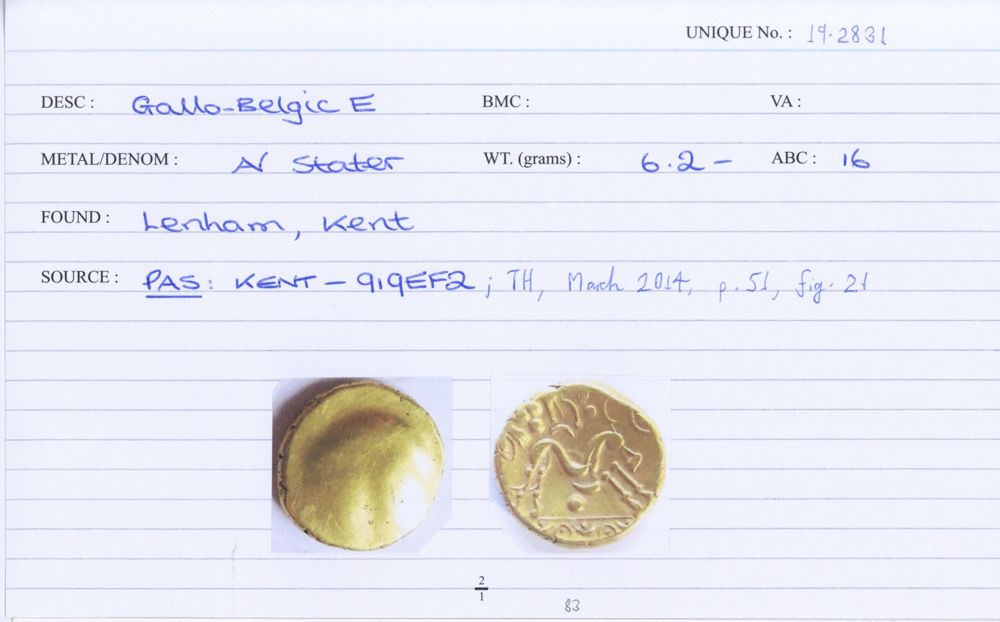 UNIQUE No. : 19.2831
DESC : Gallo-Belgic E BMC : VA :
METAL/DENOM : AV Stater WT. (grams) : 6.2 - ABC : 16
FOUND : Lenham, Kent
SOURCE : PAS: KENT - 919EF2; TH, March 2014, p.51, fig. 21
2
1
83